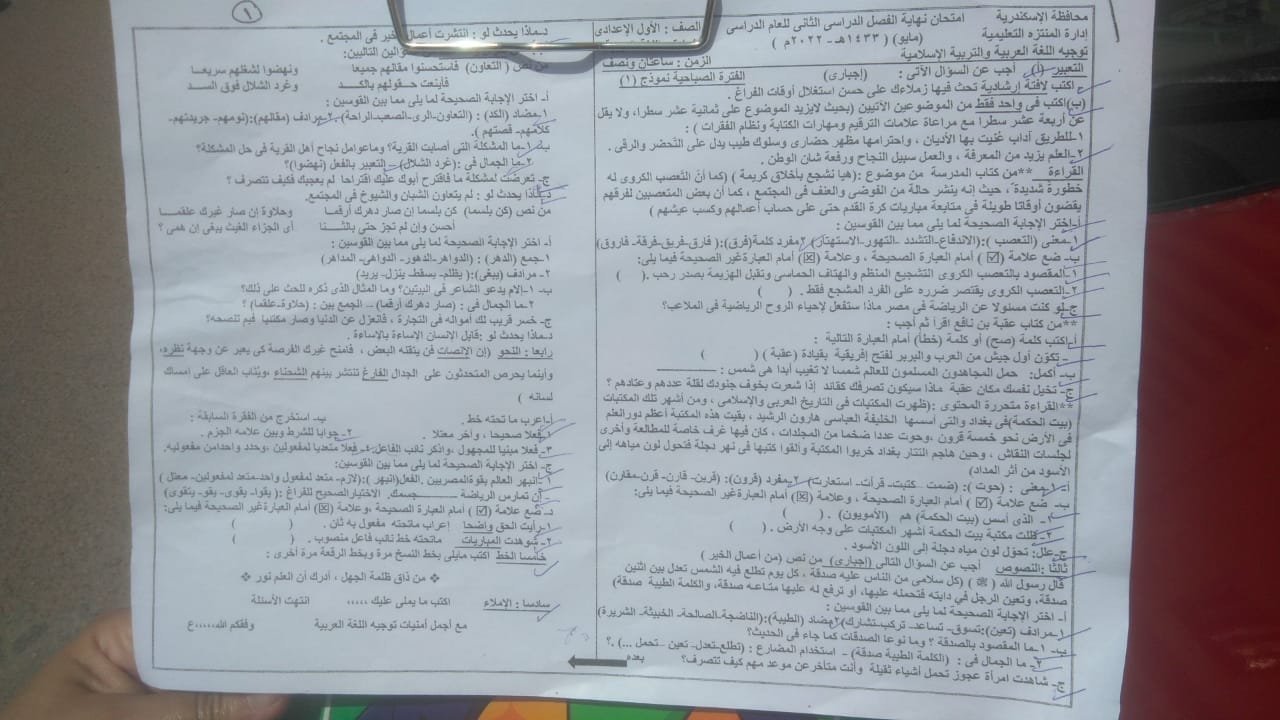 ١
محافظة الإسكندرية امتحان نهاية الفصل الدراسى الثانى للعام الدراسى الصف : الأول الإعدادى
إدارة المنتزه التعليمية (مايو) ( ١٤٣٣هـ - ٢٠٢٢م )
توجيه اللغة العربية والتربية الإسلامية الزمن : ساعتان ونصف
التعبير - (أ) أجب عن السؤال الآتى : (إجبارى) الفترة الصباحية نموذج (١)
اكتب لافتة إرشادية تحث فيها زملاءك على حسن استغلال أوقات الفراغ .
(ب) اكتب فى واحد فقط من الموضوعين الآتيين (بحيث لايزيد الموضوع على ثمانية عشر سطرا، ولا يقل
عن أربعة عشر سطرا مع مراعاة علامات الترقيم ومهارات الكتابة ونظام الفقرات ) :
١-للطريق آداب عُنيت بها الأديان ، واحترامها مظهر حضارى وسلوك طيب يدل على التحضر والرقى .
٢-العلم يزيد من المعرفة ، والعمل سبيل النجاح ورفعة شان الوطن .
القراءة **من كتاب المدرسة من موضوع : (هيا نشجع بأخلاق كريمة ) (كما أنّ التعصب الكروى له
خطورة شديدة ، حيث إنه ينشر حالة من الفوضى والعنف فى المجتمع ، كما أن بعض المتعصبين لفرقهم
يقضون أوقاتا طويلة فى متابعة مباريات كرة القدم حتى على حساب أعمالهم وكسب عيشهم )
أ-اختر الإجابة الصحيحة لما يلى مما بين القوسين :
١-معنى (التعصب ):(الاندفاع-التشدد -التهور-الاستهتار) ٢-مفرد كلمة(فرق):( فارق-فريق-فرقة- فاروق)
ب- ضع علامة (☑) أمام العبارة الصحيحة ، وعلامة (☒) أمام العبارة غير الصحيحة فيما يلى:
١-المقصود بالتعصب الكروى التشجيع المنظم والهتاف الحماسى وتقبل الهزيمة بصدر رحب . ( )
٢-التعصب الكروى يقتصر ضرره على الفرد المشجع فقط . ( )
ج-لو كنت مسئولا عن الرياضة فى مصر ماذا ستفعل لإحياء الروح الرياضية فى الملاعب؟
**من كتاب عقبة بن نافع اقرأ ثم أجب :
أ-اكتب كلمة (صح) أو كلمة (خطأ) أمام العبارة التالية :
- تكوّن أول جيش من العرب والبربر لفتح إفريقية بقيادة (عقبة ) ( )
ب- أكمل: حمل المجاهدون المسلمون للعالم شمسا لا تغيب أبدا هى شمس :
ج- تخيل نفسك مكان عقبة ماذا سيكون تصرفك كقائد إذا شعرت بخوف جنودك لقلة عددهم وعتادهم ؟
**القراءة متحررة المحتوى :(ظهرت المكتبات فى التاريخ العربى والإسلامى ، ومن أشهر تلك المكتبات
(بيت الحكمة)فى بغداد والتى أسسها الخليفة العباسى هارون الرشيد ، بقيت هذه المكتبة أعظم دورالعلم
فى الأرض نحو خمسة قرون ،وحوت عددا ضخما من المجلدات ، كان فيها غرف خاصة للمطالعة وأخرى
لجلسات النقاش ، وحين هاجم التتار بغداد خربوا المكتبة وألقوا كتبها فى نهر دجلة فتحول لون مياهه إلى
الأسود من أثر المداد)
أ- ١-معنى : (حوت): (ضمت - كتبت- قرأت- استعارت) ٢-مفرد (قرون): (قرين- قارن- قرن-مقارن)
ب- ضع علامة (☑) أمام العبارة الصحيحة ، وعلامة (☒) أمام العبارة غير الصحيحة فيما يلى:
١- الذى أسس (بيت الحكمة) هم (الأمويون) . ( )
٢- ظلت مكتبة بيت الحكمة أشهر المكتبات على وجه الأرض . ( )
ج-علل: تحوّل لون مياه دجلة إلى اللون الأسود .
ثالثا :النصوص أجب عن السؤال التالى (إجبارى) من نص (من أعمال الخير )
قال رسول الله (ﷺ) ( كل سلامى من الناس عليه صدقة ، كل يوم تطلع فيه الشمس تعدل بين اثنين
صدقة، وتعين الرجل في دابته فتحمله عليها، أو ترفع له عليها متاعه صدقة، والكلمة الطيبة صدقة)
أ- اختر الإجابة الصحيحة لما يلى مما بين القوسين :
١-مرادف (تعين):(تسوق- تساعد- تركب-تشارك) ٢-مضاد (الطيبة):(الناضجة-الصالحة- الخبيثة- الشريرة)
ب-١-ما المقصود بالصدقة ؟ وما نوعا الصدقات كما جاء فى الحديث؟
٢- ما الجمال فى : (الكلمة الطيبة صدقة) - استخدام المضارع : (تطلع-تعدل- تعين -تحمل ...) .؟
ج- شاهدت امرأة عجوز تحمل أشياء ثقيلة وأنت متأخرعن موعد مهم كيف تتصرف؟ بعده
د-ماذا يحدث لو : انتشرت أعمال الخير فى المجتمع .
من نص (التعاون) فاستحسنوا مقالهم جميعا ونهضوا لشغلهم سريعا
فأينعت حقولهم بالكد وغرد الشلال فوق السد
أ- اختر الإجابة الصحيحة لما يلى مما بين القوسين :
١-مضاد (الكد) : (التعاون-الرى-الصعب-الراحة) ٢-مرادف (مقالهم):(لومهم- جريدتهم-
كلامهم- قصتهم ).
ب-١-ما المشكلة التى أصابت القرية؟ وماعوامل نجاح أهل القرية فى حل المشكلة؟
٢-ما الجمال فى :(غرد الشلال)- التعبير بالفعل (نهضوا)؟
ج- تعرضت لمشكلة ما فاقترح أبوك عليك اقتراحا لم يعجبك فكيف تتصرف ؟
د-ماذا يحدث لو : لم يتعاون الشبان والشيوخ فى المجتمع.
من نص (كن بلسما) كن بلسما إن صار دهرك أرقما وحلاوة إن صار غيرك علقما
أحسن وإن لم تجز حتى بالثنا أى الجزاء الغيث يبغى إن همى ؟
أ- اختر الإجابة الصحيحة لما يلى مما بين القوسين :
١-جمع (الدهر) : (الدواهر-الدهور- الدواهى- المداهر)
٢- مرادف (يبغى): (يظلم- يسقط- ينزل- يريد)
ب- ١-إلام يدعو الشاعر فى البيتين؟ وما المثال الذى ذكره للحث على ذلك؟
٢-ما الجمال فى : (صار دهرك أرقما) – الجمع بين : (حلاوة-علقما) ؟
ج- خسر قريب لك أمواله فى التجارة ، فانعزل عن الدنيا وصار مكتئبا فبم تنصحه؟
د-ماذا يحدث لو :قابل الإنسان الإساءة بالإساءة.
رابعا : النحو (إن الإنصات فن يتقنه البعض ، فامنح غيرك الفرصة كى يعبر عن وجهة نظره،
وأينما يحرص المتحدثون على الجدال الفارغ تنتشر بينهم الشحناء ،ويُثاب العاقل على امساك
لسانه )
أ-اعرب ما تحته خط . ب- استخرج من الفقرة السابقة :
١-فعلا صحيحا ، وآخر معتلا . ٢- جوابا للشرط وبين علامه الجزم .
٣- فعلا مبنيا للمجهول ،واذكر نائب الفاعل.٤-فعلا متعديا لمفعولين ،وحدد واحدامن مفعوليه.
ج- اختر الإجابة الصحيحة لما يلى مما بين القوسين:
١- انبهر العالم بقوة المصريين .الفعل(انبهر ):(لازم- متعد لمفعول واحد-متعد لمفعولين- معتل )
- إن تمارس الرياضة ........ جسمك. الاختيار الصحيح للفراغ :( يقوا- يقوى- يقو- يتقوى)
د- ضع علامة (☑) أمام العبارة الصحيحة، وعلامة (☒) أمام العبارة غير الصحيحة فيما يلى:
١-رأيت الحق واضحا إعراب ماتحته مفعول به ثان . ( )
٢- شوهدت المباريات ماتحته خط نائب فاعل منصوب . ( )
خامسا الخط اكتب مايلى بخط النسخ مرة وبخط الرقعة مرة أخرى :
❖ من ذاق ظلمة الجهل ، أدرك أن العلم نور ❖
سادسا : الإملاء اكتب ما يملى عليك ،،،،، انتهت الأسئلة
مع أجمل أمنيات توجيه اللغة العربية وفقكم الله،،،،،ع